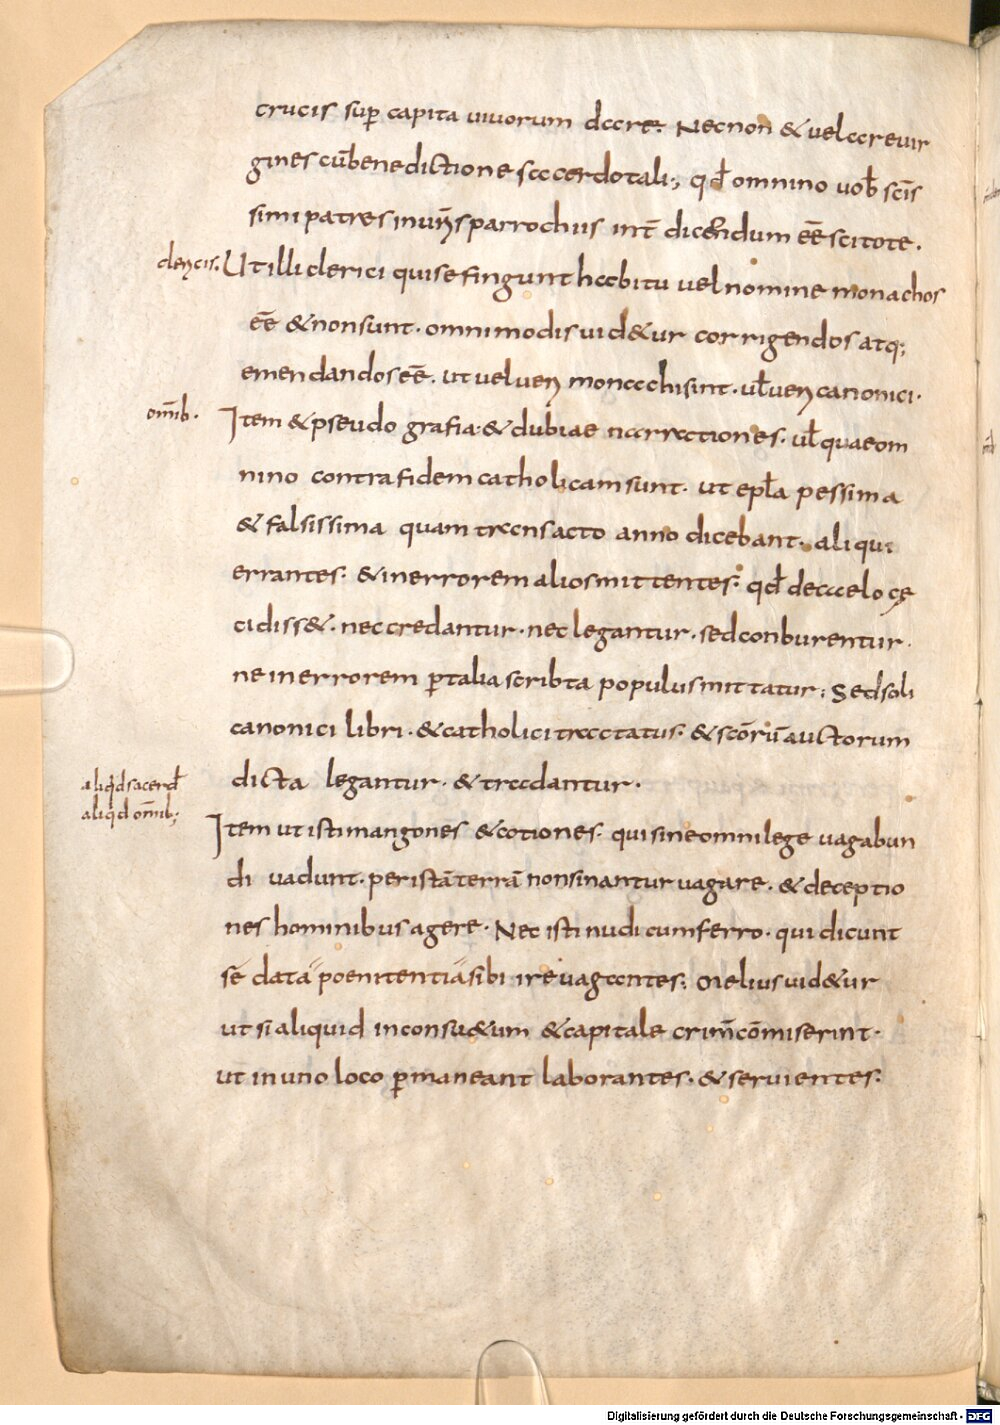 crucis sup̄ capita uiuorum dare. Necnon & uelare uir
gines cū benedictione sacerdotali; qd̄ omnino uob̄ scīs
simi patres in urīs parrochiis int̄ dicendum eē scitote.
clericis. Ut illi clerici qui se fingunt habitu uel nomine monachos
eē & non sunt. omnimodis uid&ur corrigendos atq;
emendandos eē. ut uel ueri monachi sint. ul̄ ueri canonici.
omīb. Item & pseudo grafia. & dubiae narrationes. ul̄ quae om
nino contra fidem catholicam sunt. ut epl̄a pessima
& falsissima quam transacto anno dicebant. aliqui
errantes. & in errorem alios mittentes. qd̄ de caelo cę
cidiss&. nec credantur. nec legantur. sed conburentur.
ne in errorem ꝑ talia scribta populus mittatur; Sed soli
canonici libri. & catholici tractatus. & scōrū auctorum
dicta legantur. & tradantur.
aliqd sacerd̄
aliqd omīb;
Item ut isti mangones & cotiones. qui sine omni lege uagabun
di uadunt. per istā terrā non sinantur uagare. & deceptio
nes hominibus agere. Nec isti nudi cum ferro. qui dicunt
sē datā poenitentiā sibi ire uagantes; Melius uid&ur
ut si aliquid inconsu&um & capitale crim̄ cōmiserint.
ut in uno loco ꝑmaneant laborantes. & seruientes.
Digitalisierung gefördert durch die Deutsche Forschungsgemeinschaft - DFG